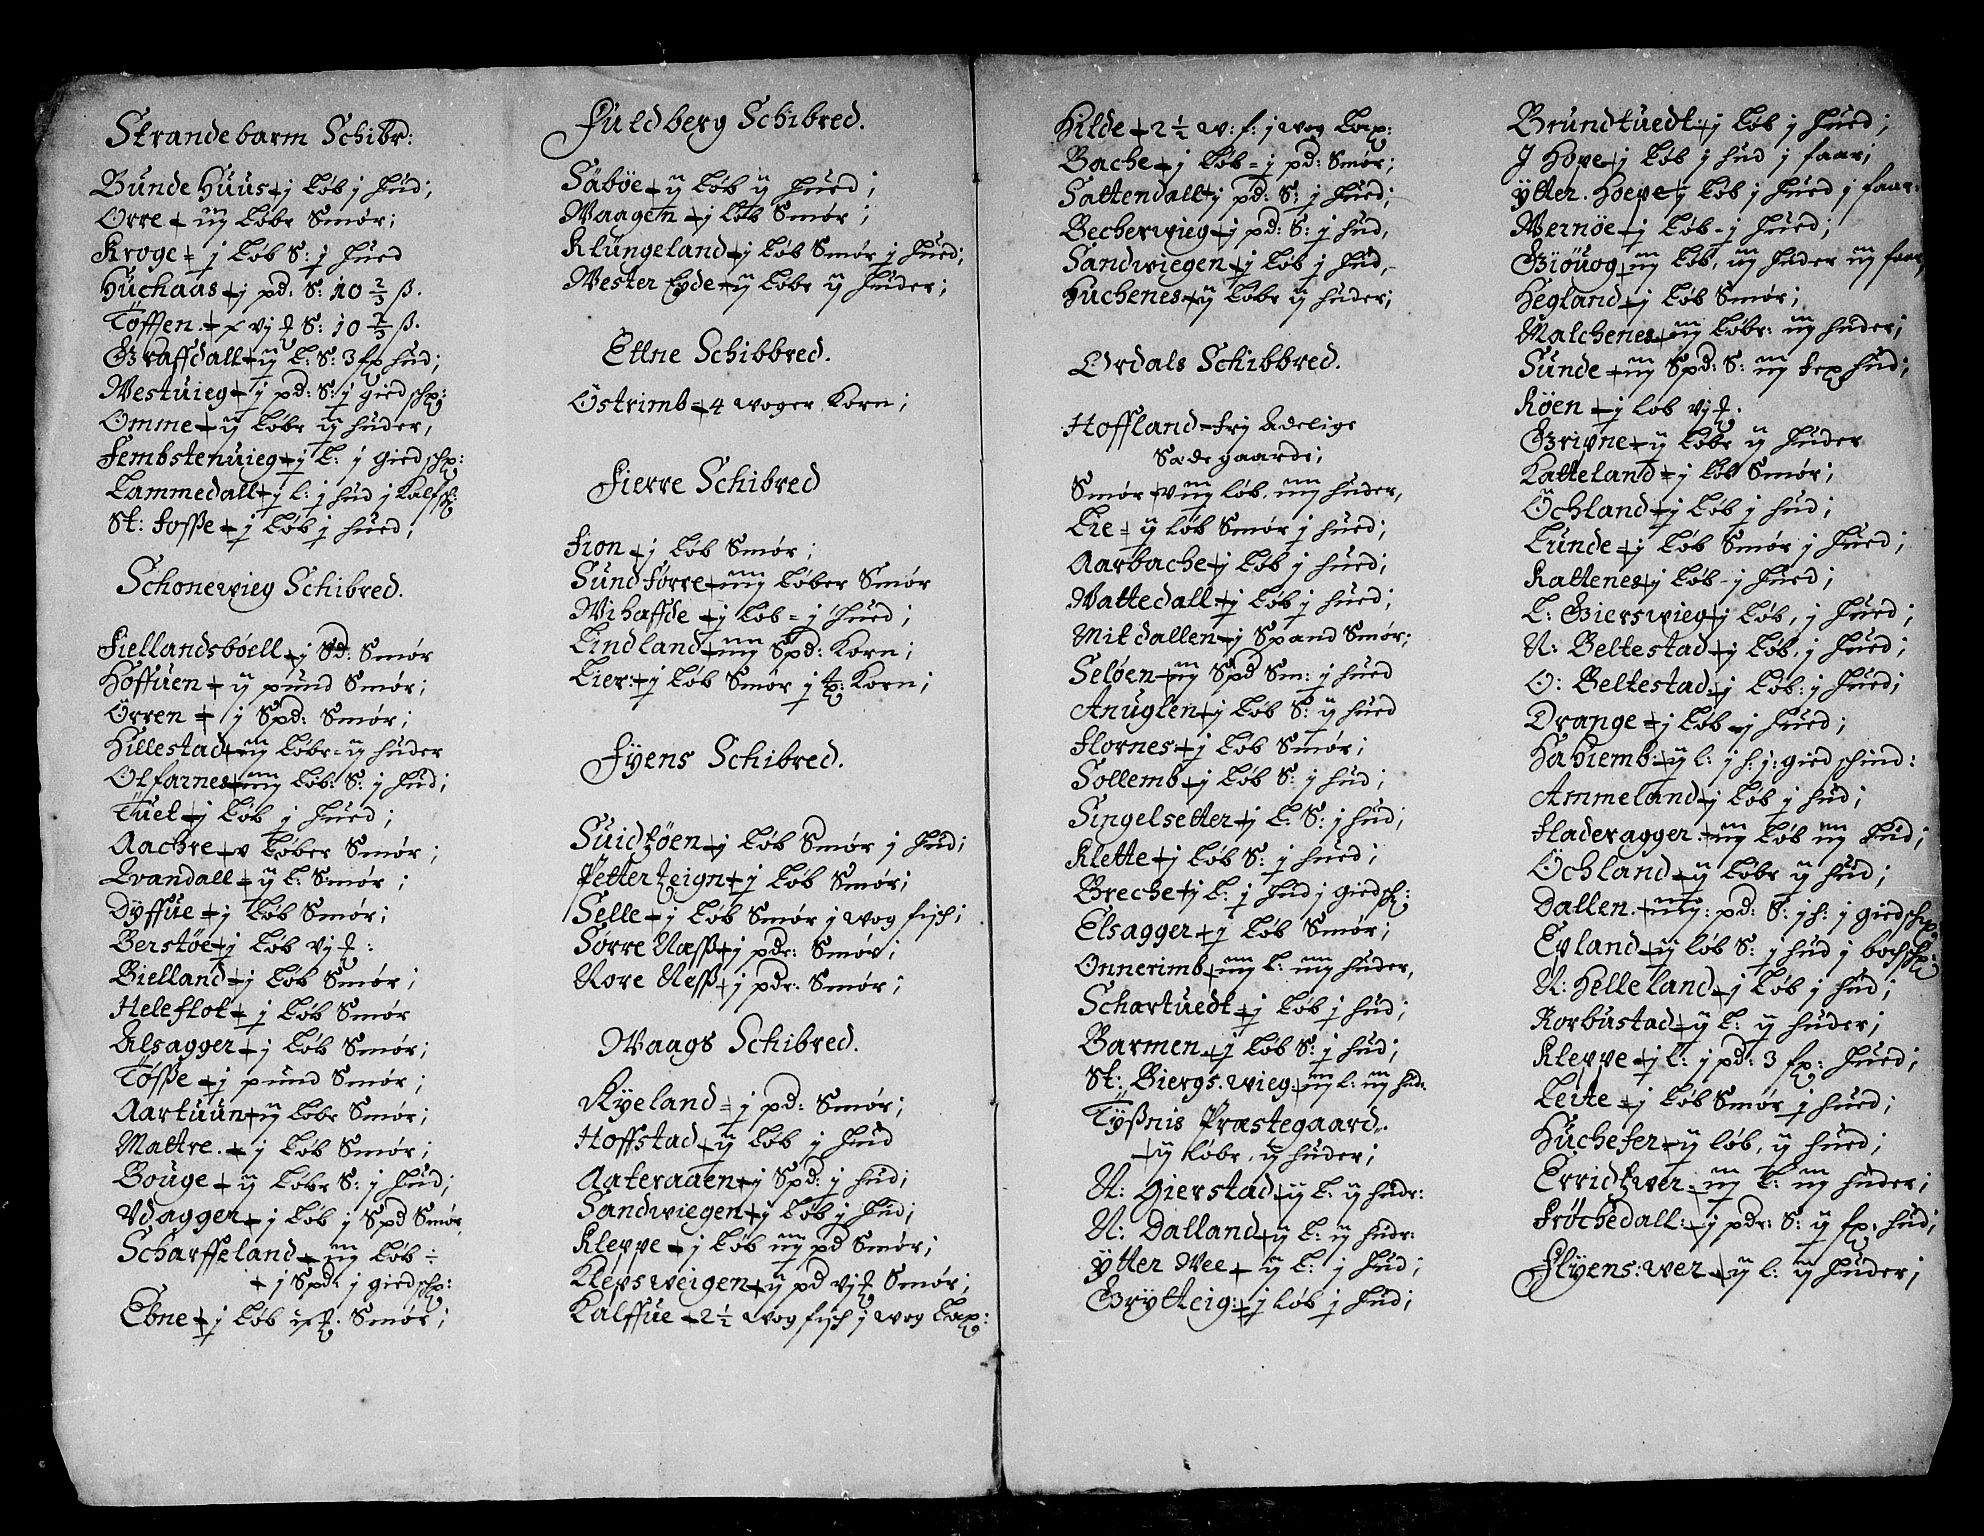 Strandebarm Schibr:
Bunde Huus j Løb j Hud;
Orre iiij Løbr Smør;
Kroge j Løb S: j Hued
Huchaas j pd: S: 10 2/3 ß.
Tøffen S: 10 2/3 ß.
Graffdall ij L: S: 3 hud;
Westuieg j pd: S: j giedschp:
Omme ij Løbr ij huder,
Fembstenuieg j L: j giedschp:
Lammedall j l: j hud j Kalfsk:
St: Fosße j Løb j hued;
Schonewieg Schibred.
Fiellandsböell j Sd: Smør
Höffuen ij pund Smør;
Örren j Spd: Smør;
Hillestad iij Løbr ij huder
Olfarnes iiij Løb: S: j Hud;
Tuet j Løb j Hued;
Aachre v Løber Smør;
Qvandall ij L: Smør;
Dyffue j Løb Smør;
Berstøe j Løb vj
Bielland j Løb Smør;
Heleflot j Løb Smør
Alsagger j Løb Smør;
Tøsße j pund Smør;
Aartuun ij Løbr Smør;
Mattre. j Løb Smør;
Bouge ij Løbr S: j Hud;
Vdagger j Løb j Spd Smør
Scharffeland iij Løb ÷
j Spd: j giedschp:
Ebne j Løb Smør;
Fuldberg Schibred.
Säböe ij Løb ij Hued;
Waagen j Løb Smør;
Klüngeland j Løb Smør j Hued;
Wester Eyde ij Løbr ij Huder;
Ettne Schibbred.
Östrimb 4 woger Korn;
Fierre Schibred
Fion j Løb Smør;
Sund Førre iiij Løber Smør
Wihaffde j Løb = j Hued;
Lindland iiij Spd: Korn;
Lier: j Løb Smør j tp: Korn;
Fyens Schibred.
Suidtzöen j Løb Smør j Hud;
Petterteign j Løb Smør;
Selle j Løb Smør j wog fisch;
Sørre Næsß j pdr: Smør;
Nore Nesß j pdr: Smør;
Waags Schibred.
Ryeland = j pd: Smør;
Hoffstad ij Løb j Hud
Aateraaen j Spd: j Hud;
Sandwiegen j Løb j Hud;
Kleppe j Løb iij pd Smør;
Klepsweigen ij pd vj Smør;
Kalffue 2½ wog fisch j wog Lax:
Hilde 2½ w: f: j wog Lax:
Bache j Løb = j pd: Smør;
Sattendall j pd: S: j Hued;
Becherwieg j pd: S: j Hud,
Sandwiegen j Løb j Hud,
Huchenes ij Løbr ij Huder;
Ordals Schibbred.
Hoffland frj Adelige
Sædegaarde;
Smør viij Løb, iiij huder,
Lie = ij Løb Smør j hued;
Aarbache j Løb j hued;
Wattedall j Løb j hued;
Mitdallen j Spand Smør;
Seløen iij Spd Sm: j hued
Anuglen j Løb S: ij hued
Flornes j Løb Smør;
Sollemb j Løb S: j hud;
Singelsetter j L: S: j hud;
Klette j Løb S: j hued;
Breche j L: j Hud j giedsch:
Elsagger j Løb Smør;
Onnerimb iiij L: iiij huder,
Schartuedt j Løb j hud;
Barmen j Løb S: j hud;
St: Biergs.wieg iij L: iij hud:
Tÿßnis Præstegaard.
ij Løbr, ij huder;
N: Gierstad ij L: ij hudr:
N: Dalland ij L: ij hudr:
ÿtter Wee ij L: j Hud;
Grytteig: j Løb j Hud;
Brundtuedt j Løb j Hued;
J Hope j Løb j hud j faar;
Ytter.Hoepe j Løb j Hued j faar:
Wernöe j Løb - j Hued;
Giöuog iij Løb, iij Huder iij faar,
Hegland j Løb Smør;
Malchenes iij Løbr: iij huder;
Sunde iij Spd: S: iij hud;
Röen j Løb vj
Gripne ij Løbr ij Huder
Katteland = j Løb Smør;
Öchland j Løb j Hud;
Lunde j Løb Smør j Hued;
Kattenes j Løb - j Hued;
L: Gierswieg j Løb, j Hued;
N: Beltestad j Løb, j Hued;
O: Beltestad j Løb: j Hued;
Drange j Løb j Hued;
Hahiemb ij L: j h: j: giedschind:
Ammeland j Løb j hud;
Fladeragger iij Løb iij Hud;
Öchland ij Løbr ij Hud;
Dallen. iiij: pd: S: j h: j giedschp,
Epland ij Løb S: j hud j bochschp:
N: Helleland j Løb j hud;
Rorbustad ij L: ij huder;
Kleppe j L: j pd: 3 fp: Hued;
Leite j Løb Smør j Hued;
Huchefer ij Løb, ij hued;
Erridtzwer iij L: iij huder;
Fröchedall: j pdr: S: ij fp: hud;
Flyens:wer ij L: ij Huder;